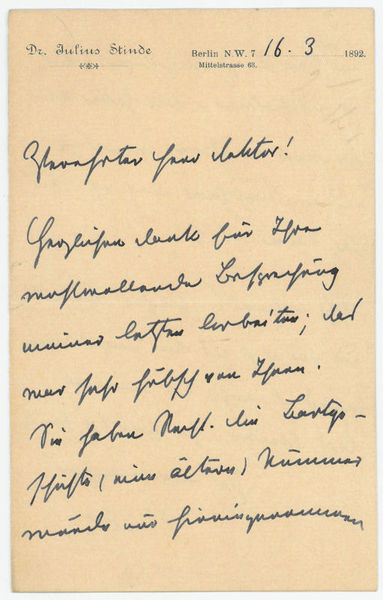 Dr. Julius Stinde
Berlin N.W. 7 16. 3 1892.
Mittelstrasse 63.
Verehrter Herr Doktor!
Herzlichen Dank für Ihre
wohlwollende Besprechung
meiner letzten Arbeiten; das
war sehr hübsch von Ihnen.
Sie haben Recht. Die
(eine ältere) Nummer
wurde nur hineingenommen